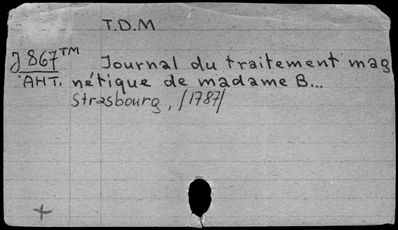 T.D.M
J 867 TM Journal du traitement mag
AHT. nétique de madame B...
Strasbourg, /1787/
+